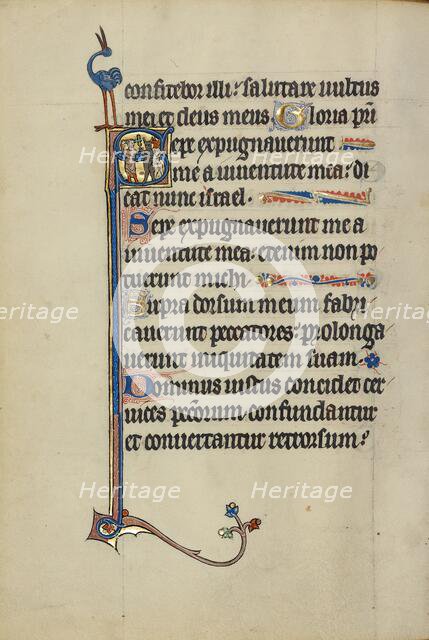 confitebor illi: salutare vultus
mei et deus meus. Gloria pri
Sepe expugnaverunt
me a iuventute mea: di
cat nunc israel.
Sepe expugnaverunt me a
iuventute mea: etenim non po
tuerunt michi
Supra dorsum meum fabri
caverunt peccatores: prolonga
verunt iniquitatem suam.
Dominus iustus concidet cer
vices peccorum confundantur
et convertantur retrorsum:
Heritage
Heritage
Heritage
Heritage
Heritage
Heritage
Heritage